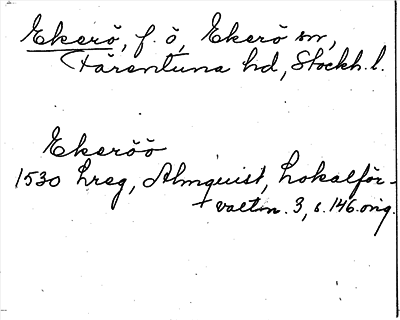 Ekerö, f. ö, Ekerö sn,
Färentuna hd, Stockh. l.
Ekeröö
1530 hreg, Almquist, Lokalför-
valtn. 3, s. 146. orig.